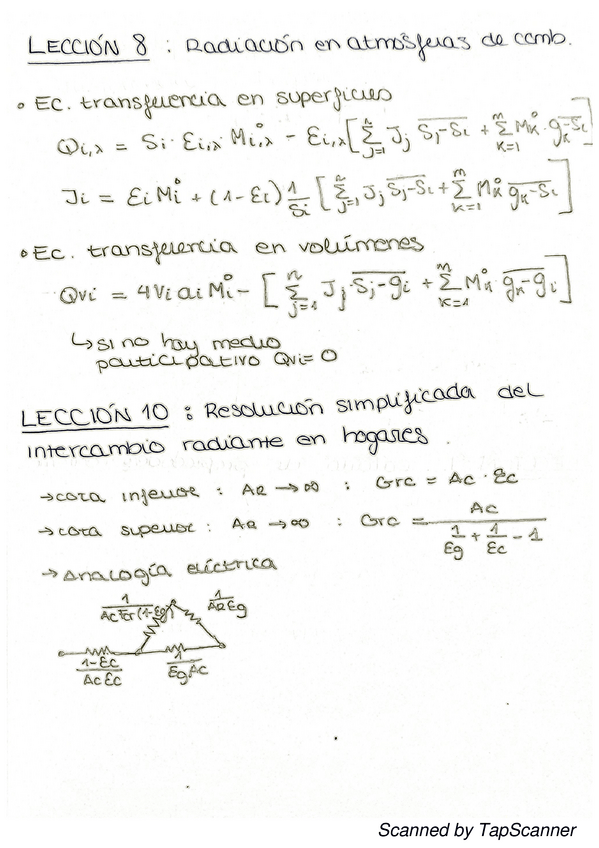 LECCIÓN 8 : Radiación en atmósferas de comb.
• Ec. transferencia en superficies
Qi,λ = Si · Ei,λ · M°i,λ − Ei,λ [ Σⁿj=1 Jj S̅j̅-̅S̅i̅ + Σᵐk=1 M°k · g̅k̅-̅S̅i̅ ]
Ji = Ei M°i + (1-Ei) 1/Si [ Σⁿj=1 Jj S̅j̅-̅S̅i̅ + Σᵐk=1 M°k g̅k̅-̅S̅i̅ ]
• Ec. transferencia en volúmenes
Qvi = 4 Vi ai M°i − [ Σⁿj=1 Jj · S̅j̅-̅g̅i̅ + Σᵐk=1 M°k g̅k̅-̅g̅i̅ ]
↳ si no hay medio
participativo Qvi = 0
LECCIÓN 10 : Resolución simplificada del
intercambio radiante en hogares
→ cota inferior : AR → ∞ : Grc = Ac · Ec
→ cota superior : AR → ∞ : Grc = Ac / (1/Eg + 1/Ec − 1)
→ Analogía eléctrica
1/(Ac Fcr (1-Eg)) 1/(AR Eg)
(1-Ec)/(Ac Ec) 1/(Eg Ac)
Scanned by TapScanner